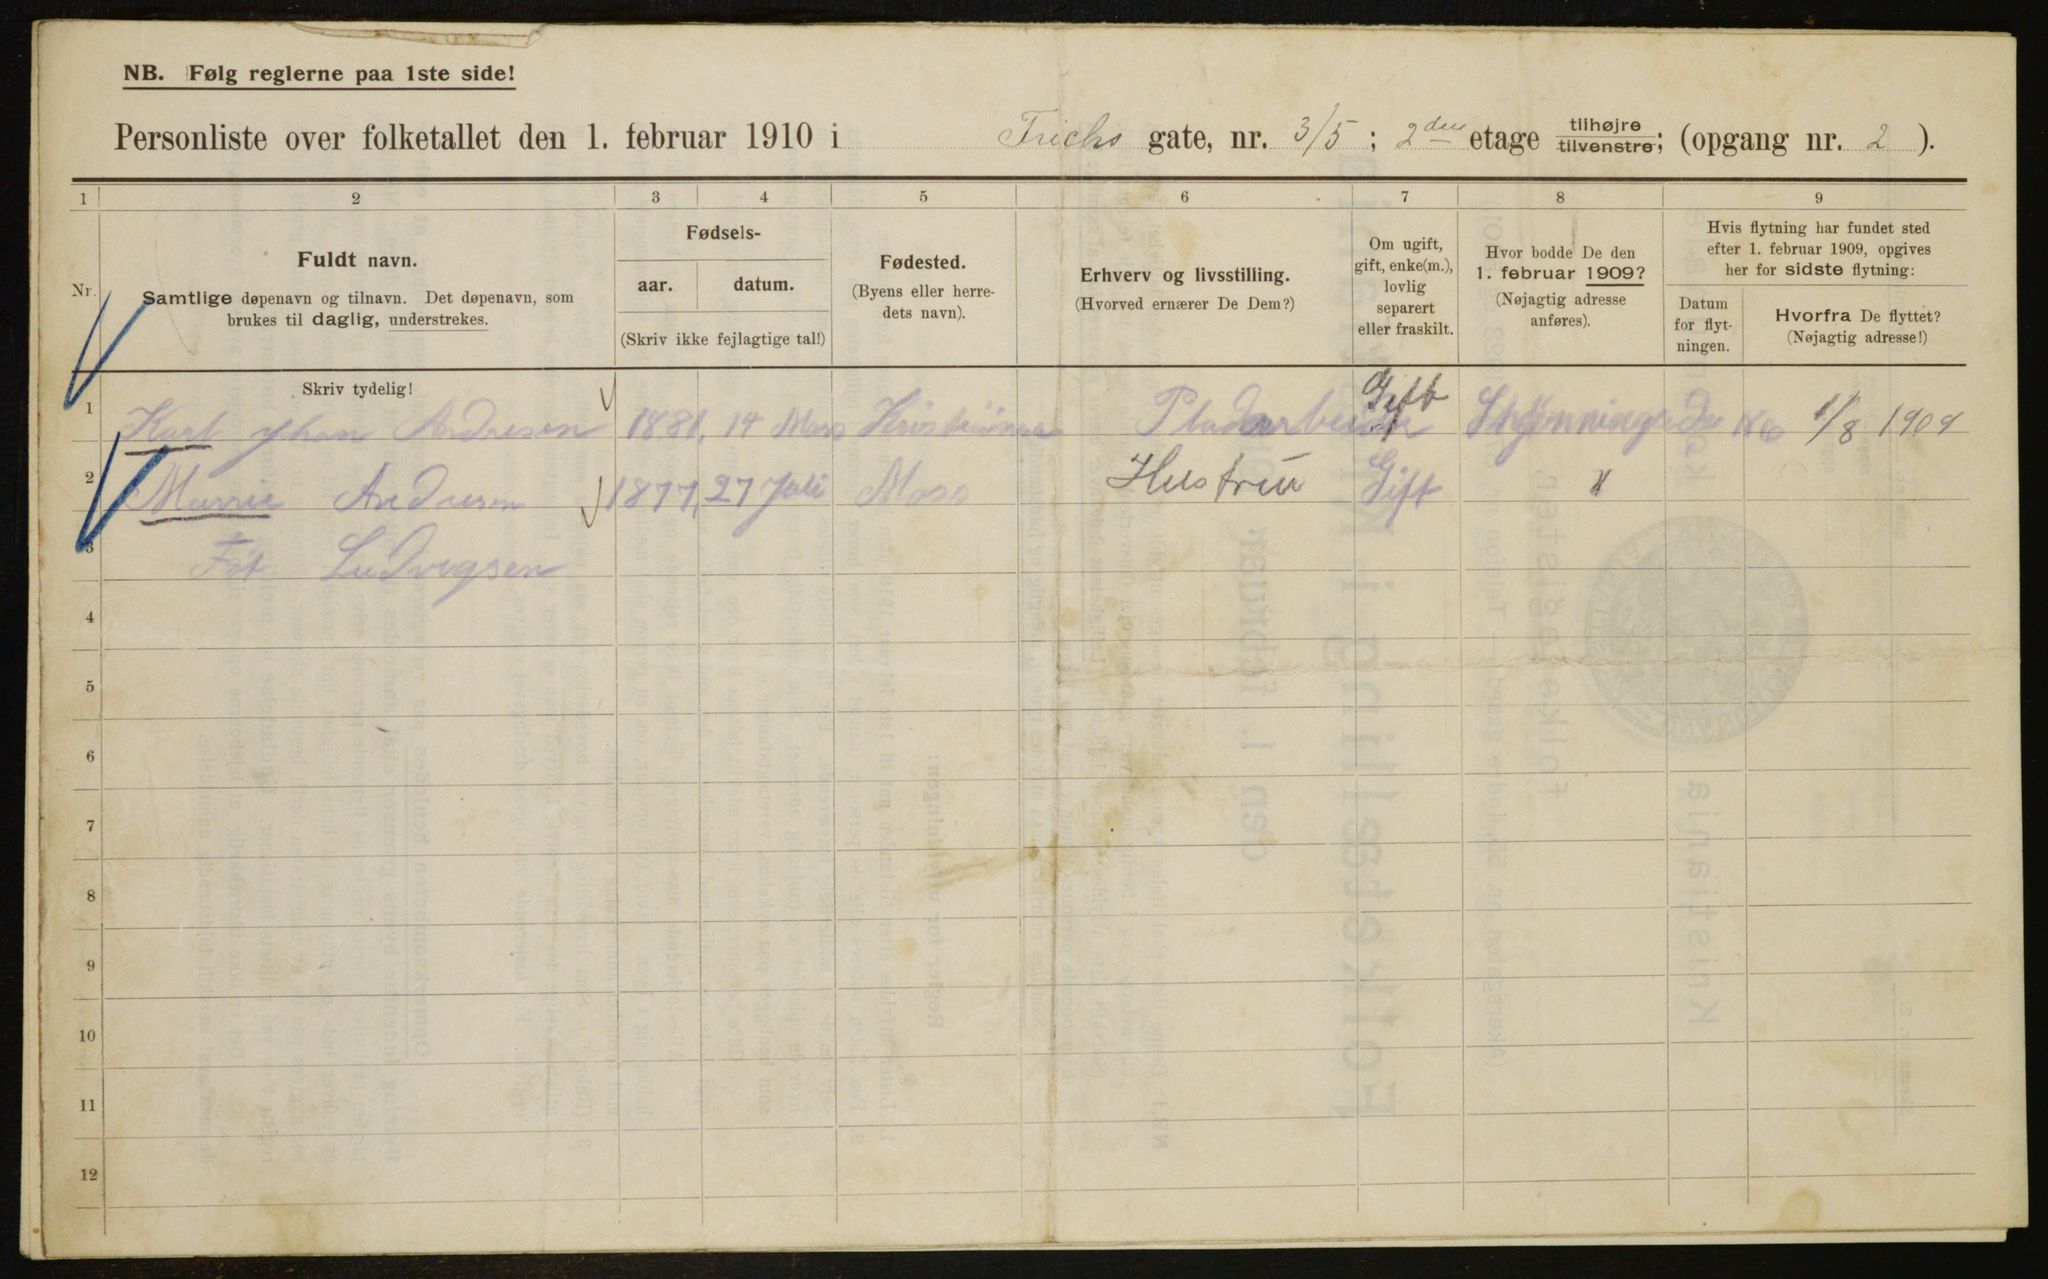 NB. Følg reglerne paa 1ste side!
Personliste over folketallet den 1. februar 1910 i Frichs gate, nr. 3/5 ; 2den etage tilhøjre tilvenstre; (opgang nr. 2 ).
1 2 3 4 5 6 7 8 9
Nr.
Fuldt navn.
Samtlige døpenavn og tilnavn. Det døpenavn, som
brukes til daglig, understrekes.
Skriv tydelig!
Fødsels-
aar. datum.
(Skriv ikke fejlagtige tal!)
Fødested.
(Byens eller herre-
dets navn).
Erhverv og livsstilling.
(Hvorved ernærer De Dem?)
Om ugift,
gift, enke(m.),
lovlig
separert
eller fraskilt.
Hvor bodde De den
1. februar 1909?
(Nøjagtig adresse
anføres).
Hvis flytning har fundet sted
efter 1. februar 1909, opgives
her for sidste flytning:
Datum
for flyt-
ningen.
Hvorfra De flyttet?
(Nøjagtig adresse!)
1 Karl Johan Andresen 1881, 14 Mars Kristiania Gift 1/8 1909
2 Marrie Andresen 1877, 27 Juli Moss Hustru Gift "
3 Føt Ludvigsen
4
5
6
7
8
9
10
11
12